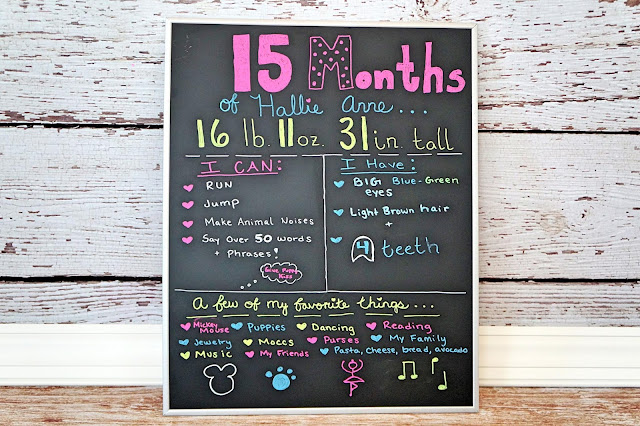 15 Months
of Hallie Anne...
16 lb. 11 oz. 31 in. tall
I CAN:
RUN
Jump
Make Animal Noises
Say Over 50 words
+ Phrases!
I Have:
BIG Blue-Green
eyes
Light Brown hair
+
4 teeth
A few of my favorite things...
Mickey Mouse Puppies Dancing Reading
Jewelry Moccs Purses My Family
Music My Friends Pasta, cheese, bread, avocado